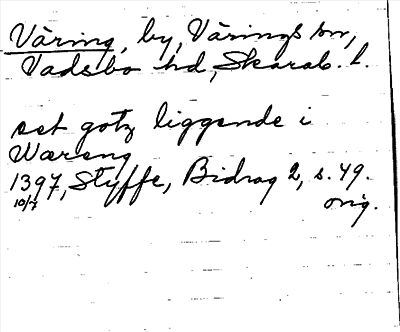 Väring, by, Värings sn,
Vadsbo hd, Skarab. l.
set gotz liggende i
Wæreng
1397, Styffe, Bidrag 2, s. 49.
10/7 orig.